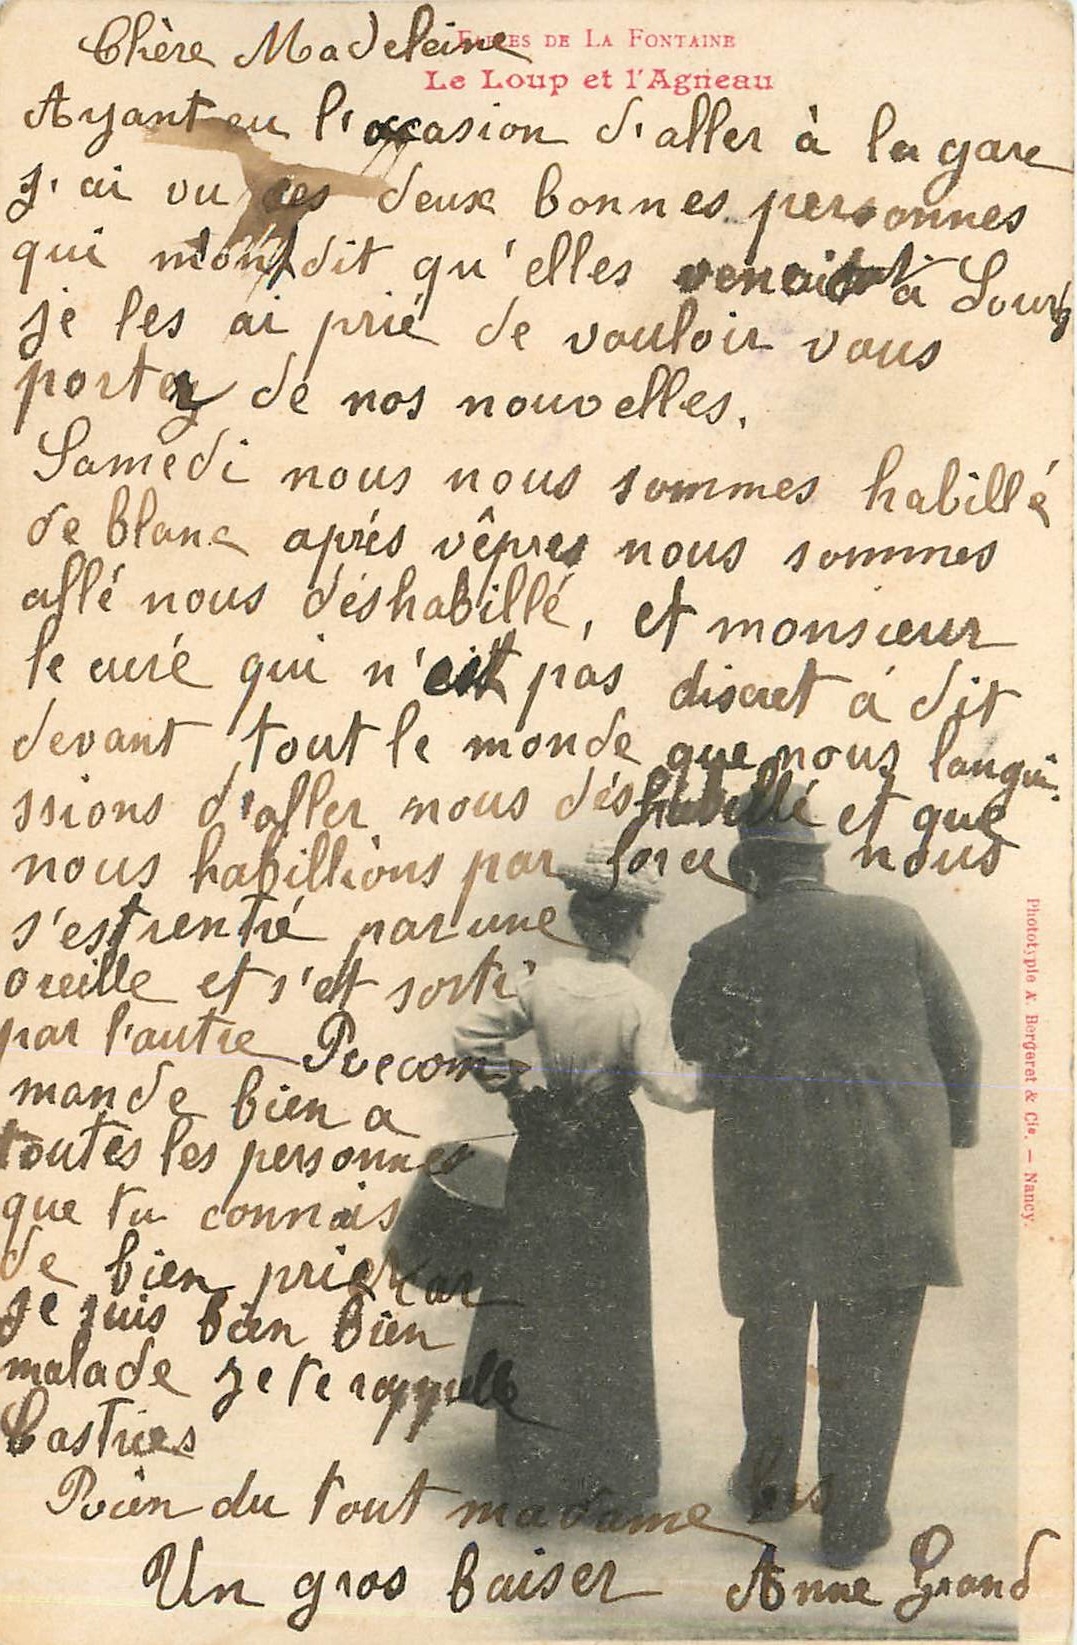 FABLES DE LA FONTAINE
Le Loup et l'Agneau
Chère Madeleine
Ayant eu l'occasion d'aller à la gare
j'ai vu ces deux bonnes personnes
qui m'ont dit qu'elles venait à
je les ai prié de vouloir vous
porter de nos nouvelles.
Samedi nous nous sommes habillé
de blanc aprés vêpres nous sommes
allé nous déshabillé, et monsieur
le curé qui n'est pas discret á dit
devant tout le monde que nous langui-
ssions d'aller nous déshabillé et que
nous habillions par force nous
s'est rentré par une
oreille et s'et sorti
par l'autre Recom-
mande bien a
toutes les personnes
que tu connais
de bien prier car
je suis bien bien
malade je te rappelle
Castries
Rien du tout madame
Un gros baiser Anne Grand
Phototypie A. Bergeret & Cie. — Nancy.